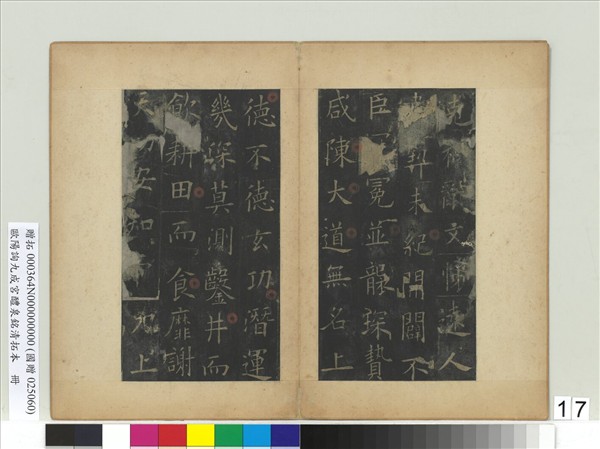 克禍亂文懷遠人
契未紀開闢不
臣冕並襲琛贄
咸陳大道無名上
德不德玄功潛運
幾深莫測鑿井而
飲耕田而食靡謝
天功安知力上
贈拓 000364N000000000 (國贈 025060)
歐陽詢九成宮醴泉銘清拓本 冊
17